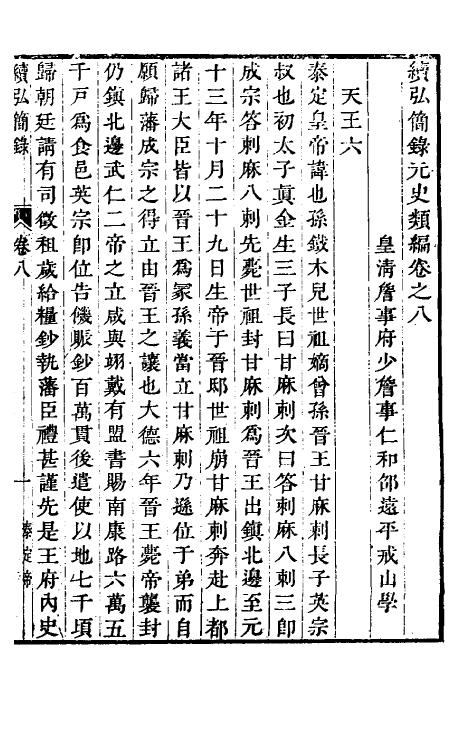 續弘簡錄元史類編卷之八
皇清詹事府少詹事仁和邵遠平戒山學
天王六
泰定皇帝諱也孫鐵木兒世祖嫡曾孫晉王甘麻剌長子英宗
叔也初太子眞金生三子長曰甘麻剌次曰答剌麻八剌三即
成宗答剌麻八剌先薨世祖封甘麻剌爲晉王出鎮北邊至元
十三年十月二十九日生帝于晉邸世祖崩甘麻剌奔赴上都
諸王大臣皆以晉王爲冢孫義當立甘麻剌乃遜位于弟而自
願歸藩成宗之得立由晉王之讓也大德六年晉王薨帝襲封
仍鎮北邊武仁二帝之立咸與翊戴有盟書賜南康路六萬五
千戸爲食邑英宗即位告饑賑鈔百萬貫後遣使以地七千頃
歸朝廷請有司徵租歲給糧鈔執藩臣禮甚謹先是王府內史
續弘簡錄
卷八
一
泰定帝